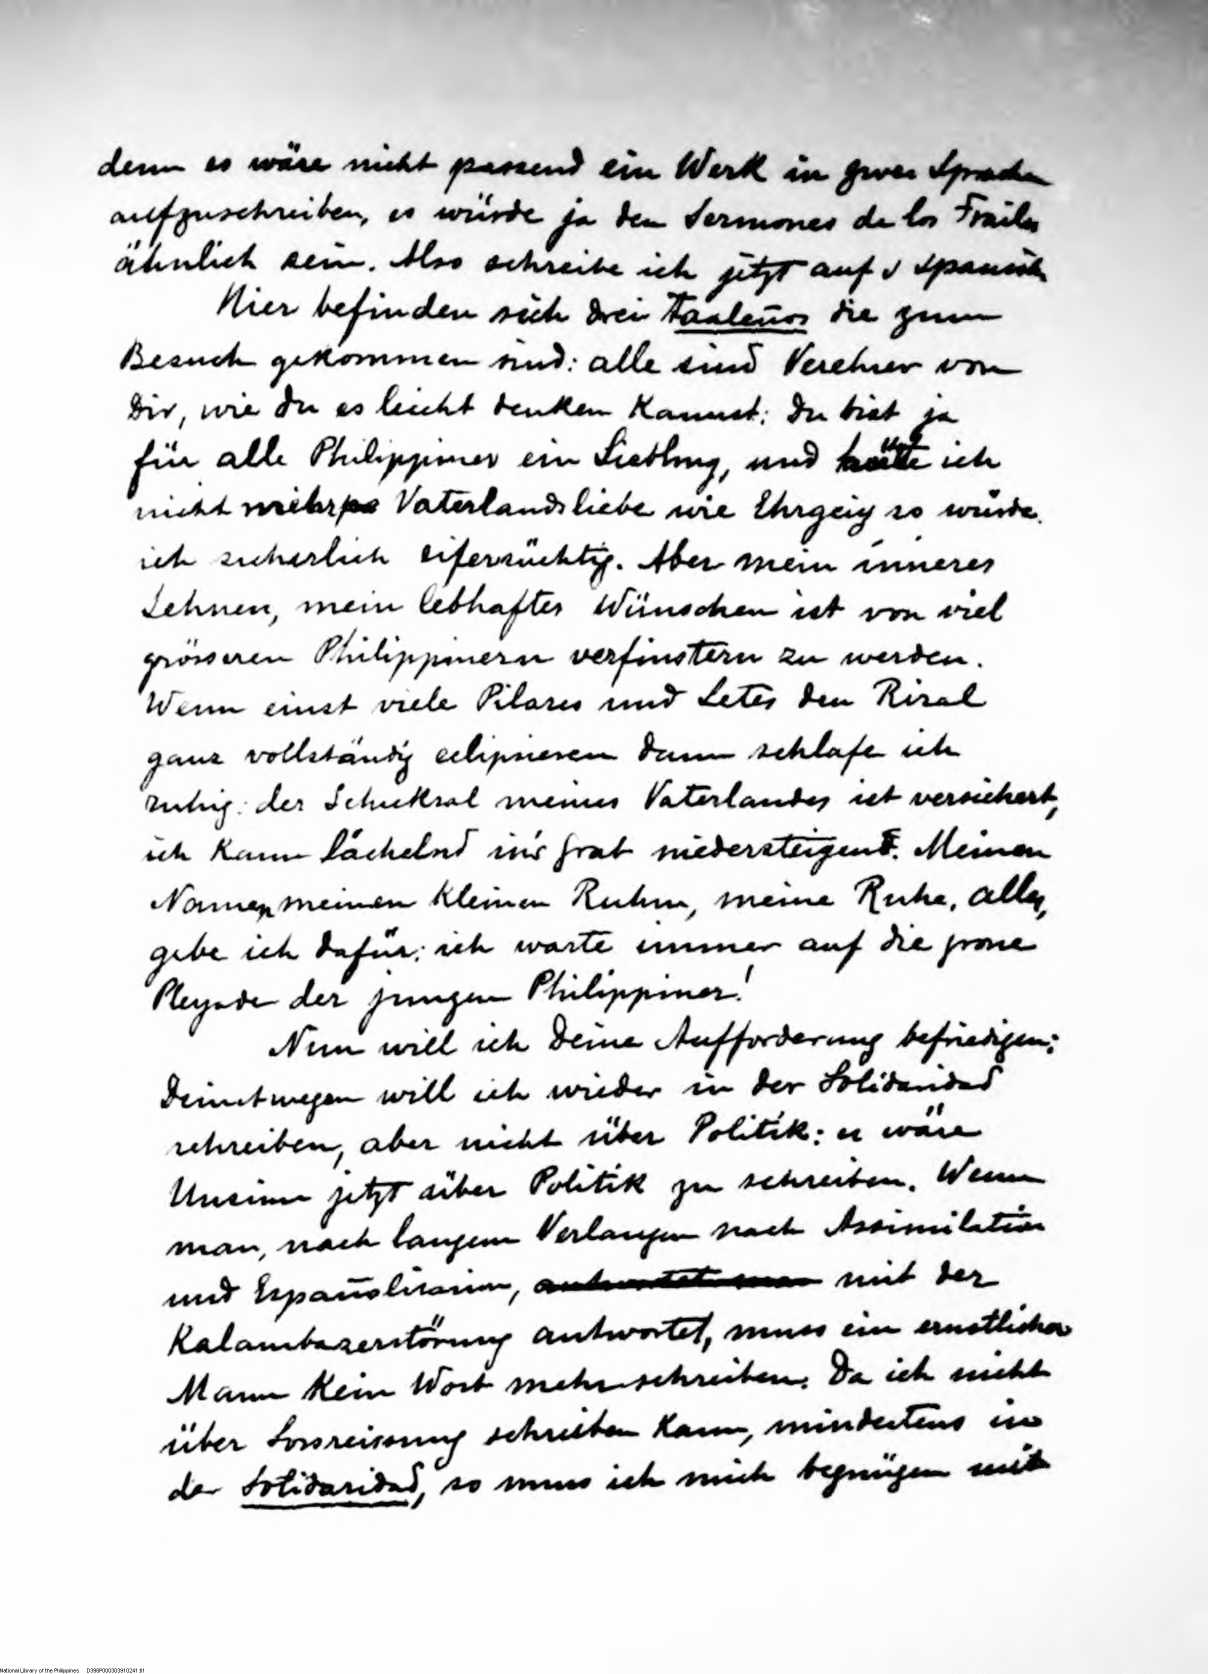 denn es wäre nicht passend ein Werk in zwei Sprachen
aufzuschreiben, es würde ja den Sermones de los Frailes
ähnlich sein. Also schreibe ich jetzt auf Spanisch
Hier befinden sich drei die zum
Besuch gekommen sind: alle sind Verehrer von
Dir, wie du es leicht denken kannst: du bist ja
für alle Philippiner ein Liebling, und hätte ich
nicht mehr Vaterlandsliebe wie Ehrgeiz so würde
ich sicherlich eifersüchtig. Aber mein inneres
Sehnen, mein lebhaftes Wünschen ist von viel
grösseren Philippinern verfinstern zu werden.
Wenn einst viele Pilares und Letes den Rizal
ganz vollständig eclipsieren dann schlafe ich
ruhig: der Schicksal meines Vaterlandes ist versichert,
ich kann lächelnd in's Grab niedersteigend. Meinen
Namen, meinen kleinen Ruhm, meine Ruhe, alles,
gebe ich dafür: ich warte immer auf die grosse
Pleyade der jungen Philippiner!
Nun will ich Deine Aufforderung befriedigen:
Deinetwegen will ich wieder in der Solidaridad
schreiben, aber nicht über Politik: es wäre
Unsinn jetzt über Politik zu schreiben. Wenn
man, nach langem Verlangen nach Assimilation
und Españolisation, mit der
Kalambazerstörung antwortet, muss ein ernstlicher
Mann kein Wort mehr schreiben. Da ich nicht
über Lossreissung schreiben kann, mindestens in
der Solidaridad, so muss ich mich begnügen mit
National Library of the Philippines